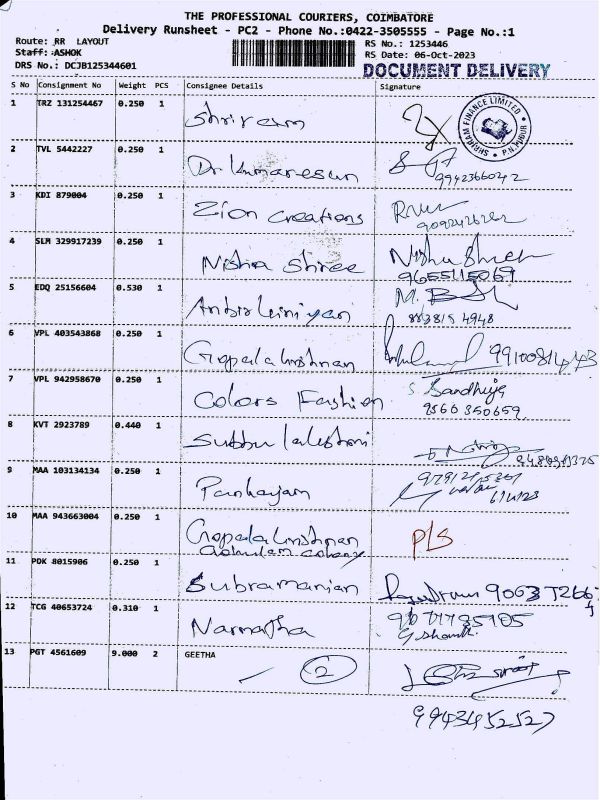 THE PROFESSIONAL COURIERS, COIMBATORE
Delivery Runsheet - PC2 - Phone No.:0422-3505555 - Page No.:1
Route: RR LAYOUT
RS No.: 1253446
Staff: ASHOK
RS Date: 06-Oct-2023
DRS No.: DCJB125344601
DOCUMENT DELIVERY
S No Consignment No Weight PCS Consignee Details Signature
1 TRZ 131254467 0.250 1 Shriram
SHRIRAM FINANCE LIMITED P.N.PUDUR
2 TVL 5442227 0.250 1 Dr Kumaresun
9942366042
3 KDI 879004 0.250 1 Zion Creations
4 SLM 329917239 0.250 1 Nisha Shree Nisha Shree
9655115069
5 EDQ 25156604 0.530 1
883815 4948
6 VPL 403543868 0.250 1 Gopalakrishnan
7 VPL 942958670 0.250 1 Colors Fashion S Sandhiya
9566350659
8 KVT 2923789 0.440 1 Subbulakshmi
9 MAA 103134134 0.250 1 Pankajam
6/10/23
10 MAA 943663004 0.250 1 Gopalakrishnan P/S
Gokulam Colony
11 PDK 8015906 0.250 1 Subramanian
12 TCG 40653724 0.310 1 Narmatha
13 PGT 4561609 9.000 2 GEETHA 2
9943452527